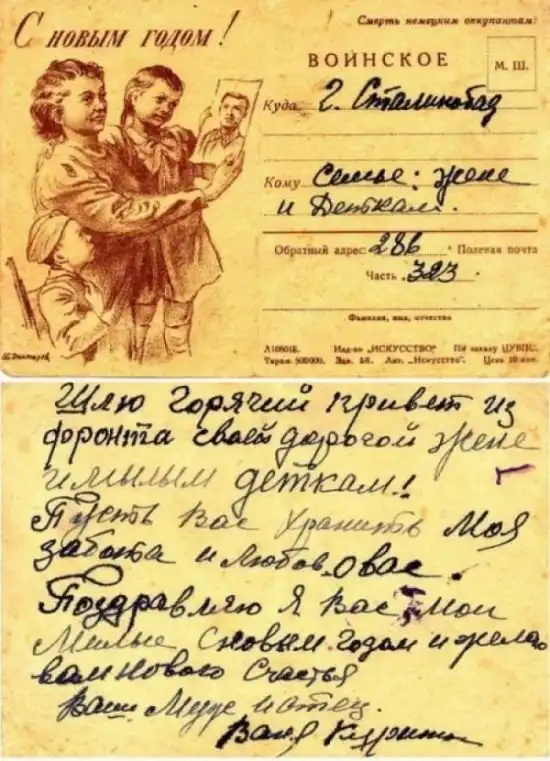 С новым годом!
Смерть немецким оккупантам!
ВОИНСКОЕ
М. Ш.
Куда г. Сталинобад
Кому семье: жене
и Деткам.
Обратный адрес: 286 Полевая почта
Часть 323
Фамилия, имя, отчество
Изд-во „ИСКУССТВО" По заказу ЦУВПС.
Тираж 500000. Зак. Лит. „Искусство". Цена 10 коп.
Шлю горячий привет из
фронта своей дорогой жене
и милым деткам!
Пусть Вас хранить Моя
забота и любов о вас.
Поздравляю я Вас мои
Милые с новым годом и желаю
вам нового счастья
Ваш Муж и отец.
Ваня